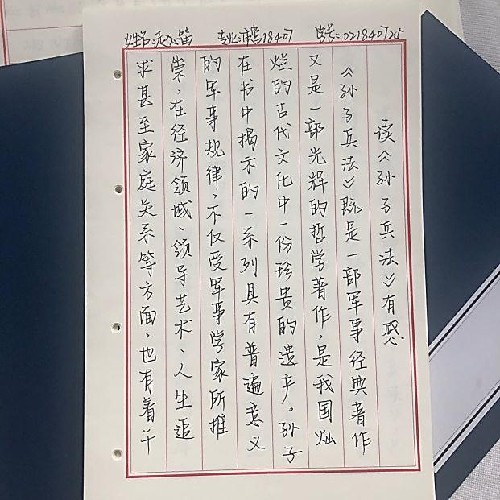 读《孙子兵法》有感
《孙子兵法》既是一部军事经典著作
又是一部光辉的哲学著作，是我国灿
烂的古代文化中一份珍贵的遗产。孙子
在书中揭示的一系列具有普遍意义
的军事规律，不仅受军事学家所推
崇，在经济领域、领导艺术、人生追
求甚至家庭关系等方面，也有着广